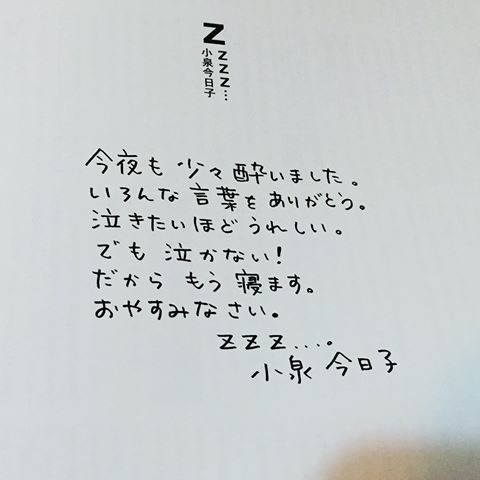 ZZZZ…
小泉今日子
今夜も少々酔いました。
いろんな言葉をありがとう。
泣きたいほどうれしい。
でも泣かない!
だからもう寝ます。
おやすみなさい。
ZZZ....。
小泉今日子